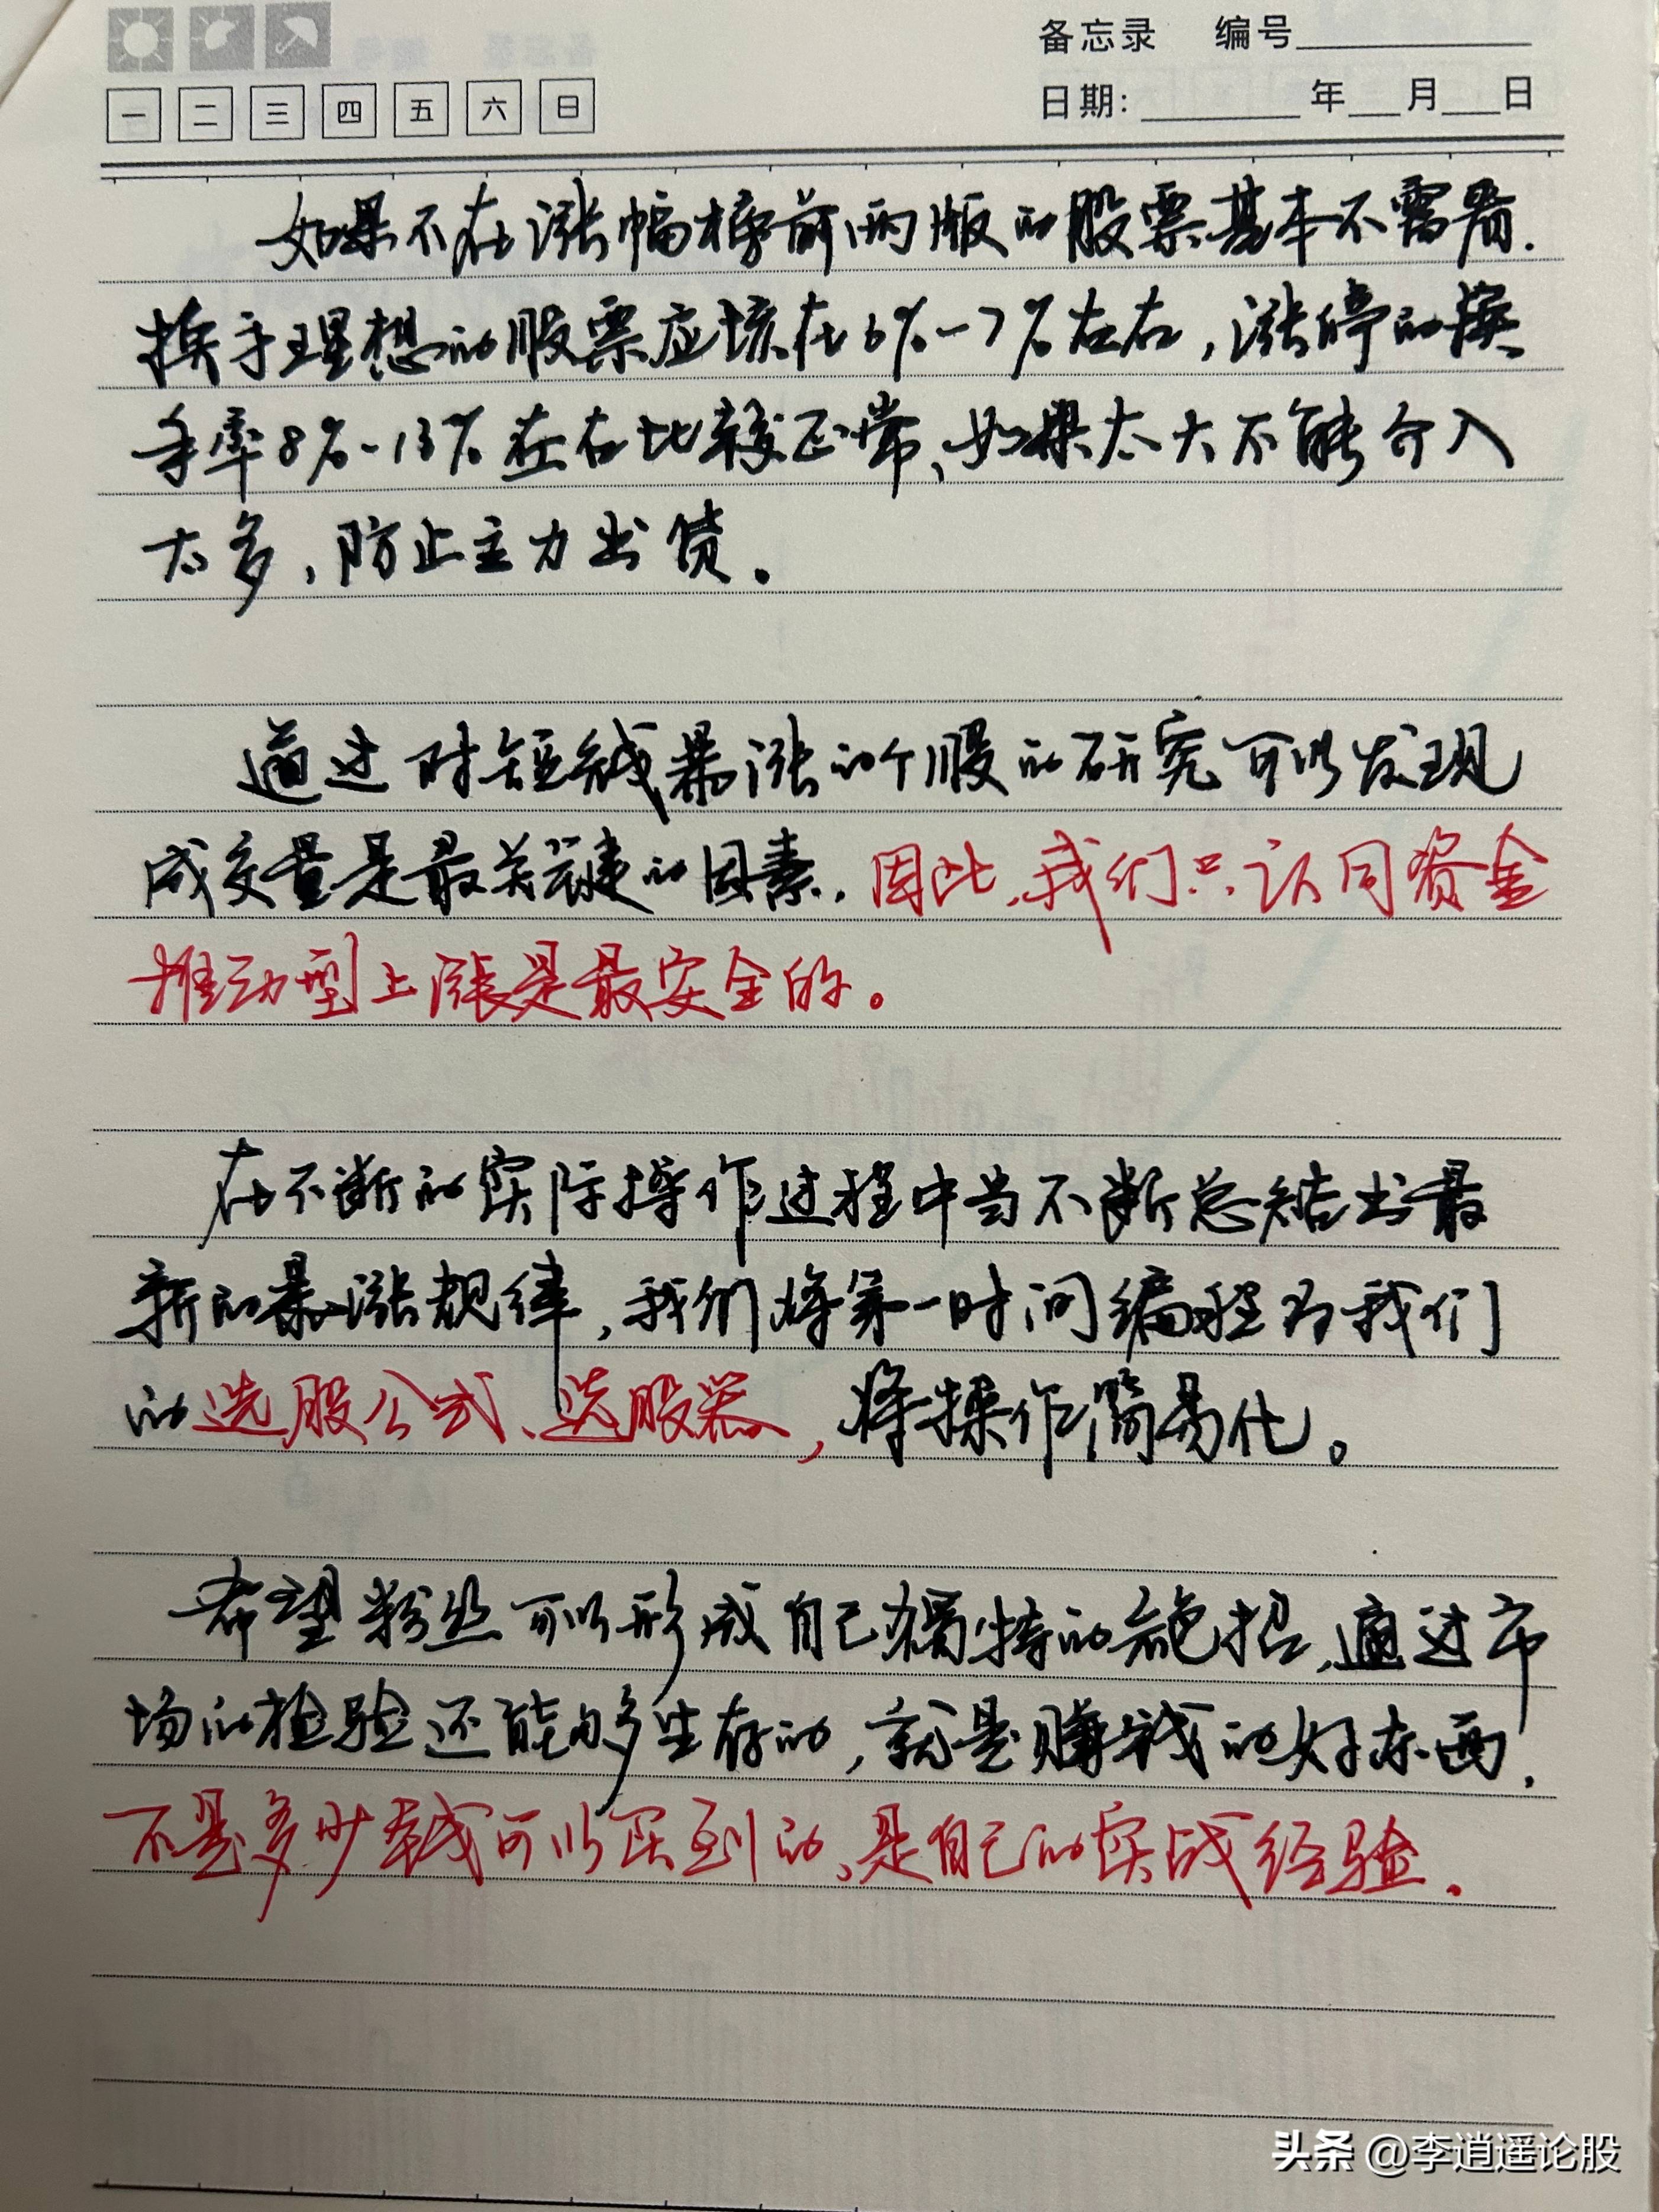 备忘录 编号
一 二 三 四 五 六 日
日期: 年 月 日
如果不在涨幅榜前两版的股票基本不需看.
换手理想的股票应该在6%-7%左右,涨停的换
手率8%-13%在右比较正常、如果太大不能介入
太多,防止主力出货。
通过对短线暴涨的个股的研究可以发现
成交量是最关键的因素.因此,我们只认同资金
推动型上涨是最安全的。
在不断的实际操作过程中当不断总结出最
新的暴涨规律,我们将第一时间编程为我们
的选股公式、选股器,将操作简易化。
希望粉丝可以形成自己独特的绝招,通过市
场的检验还能够生存的,就是赚钱的好东西,
不是多少钱可以买到的、是自己的实战经验.
头条 @李逍遥论股